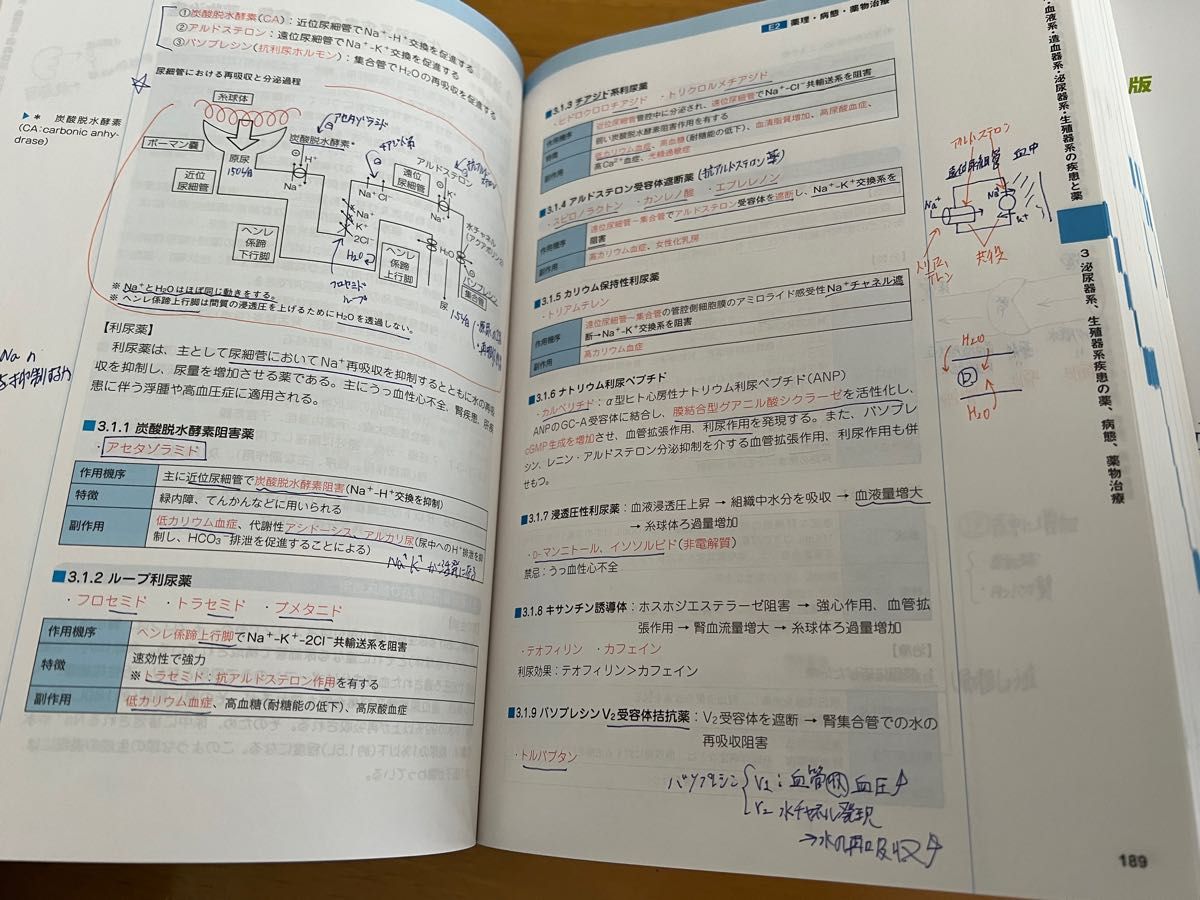 ①炭酸脱水酵素(CA)：近位尿細管でNa⁺-H⁺交換を促進する
②アルドステロン：遠位尿細管でNa⁺-K⁺交換を促進する
③バソプレシン(抗利尿ホルモン)：集合管でH₂Oの再吸収を促進する
尿細管における再吸収と分泌過程
▶＊ 炭酸脱水酵素
(CA：carbonic anhy-
drase)
糸球体
ボーマン嚢
原尿
近位
尿細管
アセタゾラミド
炭酸脱水酵素＊
H⁺
Na⁺
チアジド系
Na⁺
Cl⁻
遠位
尿細管
アルドステロン
K⁺
Na⁺
Na⁺
K⁺
2Cl⁻
H₂O
フロセミド
ループ
ヘンレ
係蹄
下行脚
ヘンレ
係蹄
上行脚
H₂O
水チャネル
(アクアポリン2)
バソプレシン
集合管
尿
※ Na⁺とH₂Oはほぼ同じ動きをする。
※ ヘンレ係蹄上行脚は間質の浸透圧を上げるためにH₂Oを透過しない。
【利尿薬】
利尿薬は、主として尿細管においてNa⁺再吸収を抑制するとともに水の再吸
収を抑制し、尿量を増加させる薬である。主にうっ血性心不全、腎疾患、肝疾
患に伴う浮腫や高血圧症に適用される。
■3.1.1 炭酸脱水酵素阻害薬
・アセタゾラミド
作用機序 主に近位尿細管で炭酸脱水酵素阻害(Na⁺-H⁺交換を抑制)
特徴 緑内障、てんかんなどに用いられる
副作用 低カリウム血症、代謝性アシドーシス、アルカリ尿(尿中へのH⁺排泄を抑
制し、HCO₃⁻排泄を促進することによる)
■3.1.2 ループ利尿薬
・フロセミド ・トラセミド ・ブメタニド
作用機序 ヘンレ係蹄上行脚でNa⁺-K⁺-2Cl⁻共輸送系を阻害
特徴 速効性で強力
※トラセミド：抗アルドステロン作用を有する
副作用 低カリウム血症、高血糖(耐糖能の低下)、高尿酸血症
E2 薬理・病態・薬物治療
■3.1.3 チアジド系利尿薬
・ヒドロクロロチアジド ・トリクロルメチアジド
作用機序 近位尿細管管腔中に分泌され、遠位尿細管でNa⁺-Cl⁻共輸送系を阻害
特徴 弱い炭酸脱水酵素阻害作用を有する
副作用 低カリウム血症、高血糖(耐糖能の低下)、血清脂質増加、高尿酸血症、
高Ca²⁺血症、光線過敏症
■3.1.4 アルドステロン受容体遮断薬 (抗アルドステロン薬)
・スピロノラクトン ・カンレノ酸 ・エプレレノン
作用機序 遠位尿細管〜集合管でアルドステロン受容体を遮断し、Na⁺-K⁺交換系を
阻害
副作用 高カリウム血症、女性化乳房
■3.1.5 カリウム保持性利尿薬
・トリアムテレン
作用機序 遠位尿細管〜集合管の管腔側細胞膜のアミロライド感受性Na⁺チャネル遮
断→Na⁺-K⁺交換系を阻害
副作用 高カリウム血症
■3.1.6 ナトリウム利尿ペプチド
・カルペリチド：α型ヒト心房性ナトリウム利尿ペプチド(ANP)
ANPのGC-A受容体に結合し、膜結合型グアニル酸シクラーゼを活性化し、
cGMP生成を増加させ、血管拡張作用、利尿作用を発現する。また、バソプレ
シン、レニン・アルドステロン分泌抑制を介する血管拡張作用、利尿作用も併
せもつ。
■3.1.7 浸透圧性利尿薬：血液浸透圧上昇 → 組織中水分を吸収 → 血液量増大
→ 糸球体ろ過量増加
・D-マンニトール、イソソルビド(非電解質)
禁忌：うっ血性心不全
■3.1.8 キサンチン誘導体：ホスホジエステラーゼ阻害 → 強心作用、血管拡
張作用 → 腎血流量増大 → 糸球体ろ過量増加
・テオフィリン ・カフェイン
利尿効果：テオフィリン>カフェイン
■3.1.9 バソプレシンV₂受容体拮抗薬：V₂受容体を遮断 → 腎集合管での水の
再吸収阻害
・トルバプタン
バソプレシン
V₁：血管 収 血圧↑
V₂ 水チャネル発現
⇒水の再吸収↑
アルドステロン
遠位尿細管
血中
Na⁺
Na⁺
K⁺
トリアムテレン
H₂O
D
H₂O
・血液系・造血器系・泌尿器系・生殖器系の疾患と薬
3 泌尿器系、生殖器系疾患の薬、病態、薬物治療
版
189